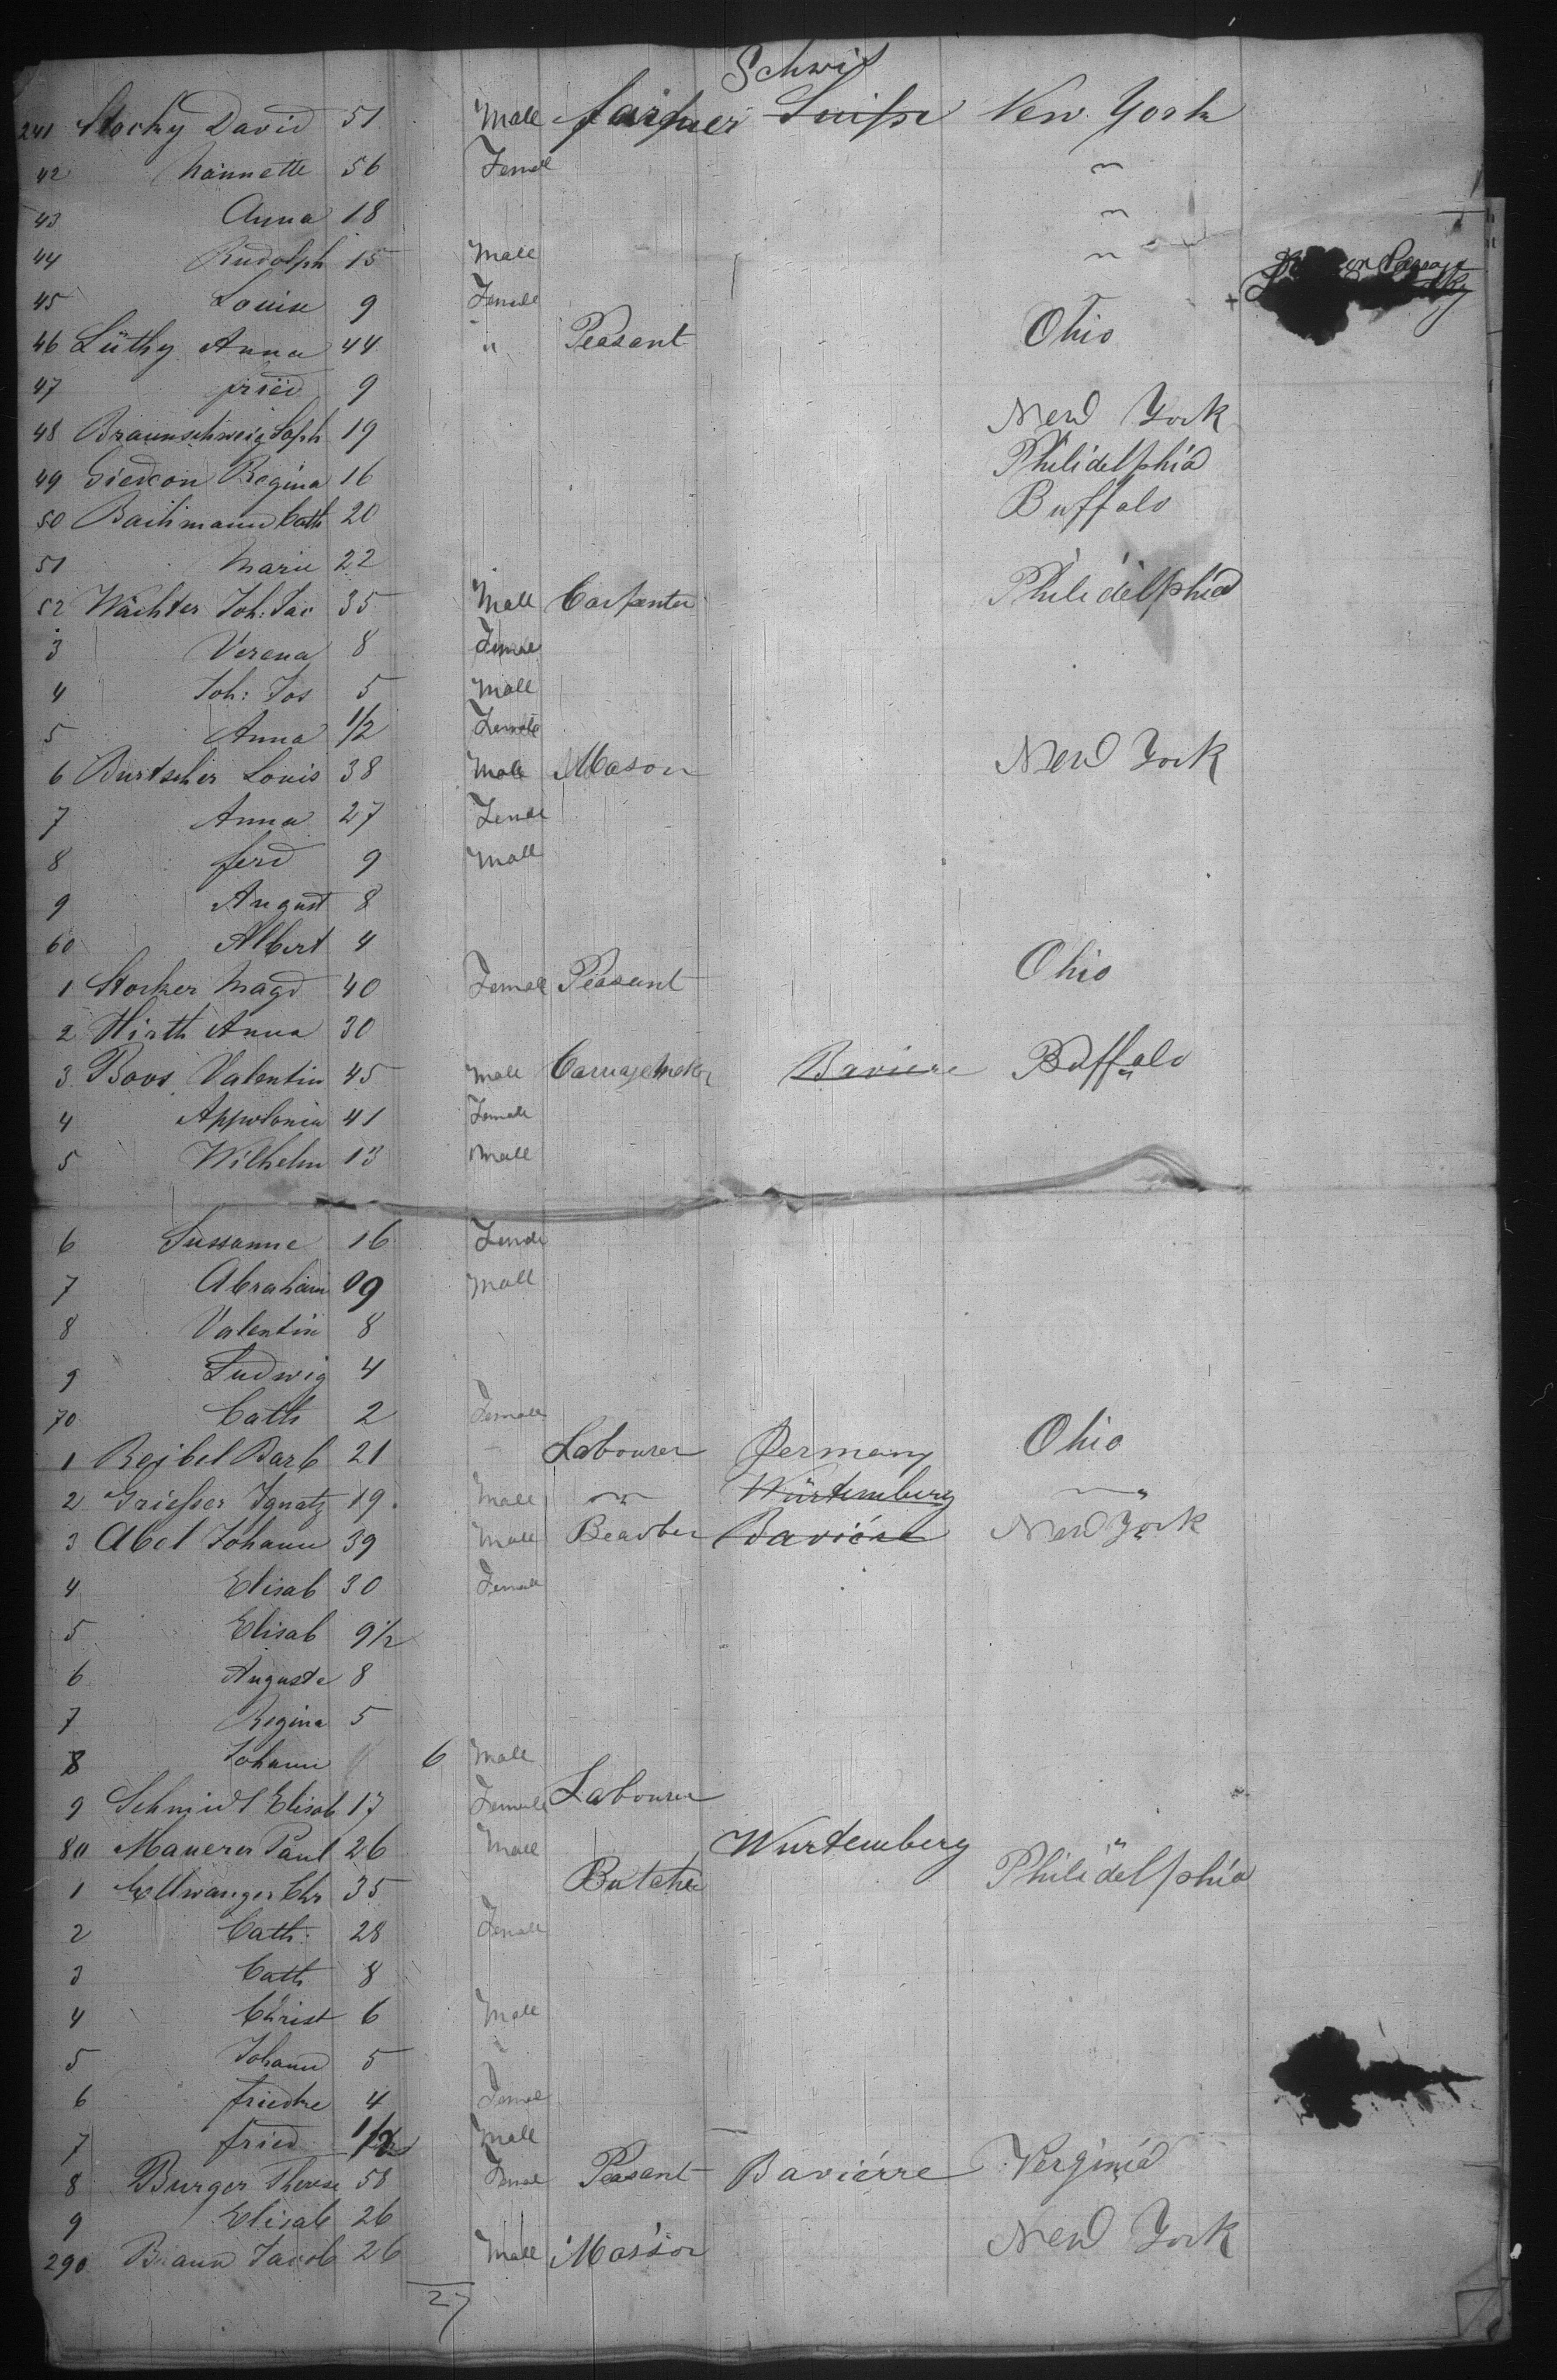 Schwis
241 Stocky David 51 Male farmer Suisse New York
42 Nannette 56 Female "
43 Anna 18 "
44 Rudolph 15 Male "
45 Louise 9 Female
46 Lüthy Anna 44 " Peasant Ohio
47 fried 9
48 Braunschweig Soph 19 New York
49 Giedeon Regina 16 Philidelphia
50 Bachmann Cath 20 Buffalo
51 Marie 22
52 Wächter Joh: Jac 35 Male Carpenter Philidelphia
3 Verena 8 Female
4 Joh: Jos 5 Male
5 Anna 1/2 Female
6 Burtscher Louis 38 Male Mason New York
7 Anna 27 Female
8 ferd 9 Male
9 August 8
60 Albert 4
1 Storker Magd 40 Female Peasant Ohio
2 Hirth Anna 30
3 Boos Valentin 45 Male Carriagemaker Baviere Buffalo
4 Appolonia 41 Female
5 Wilhelm 13 Male
6 Sussanne 16 Female
7 Abraham 9 Male
8 Valentin 8
9 Ludwig 4
70 Cath 2 Female
1 Reibel Barb 21 " Labourer Germany Ohio
2 Griesser Ignatz 19 Male " Würtemberg "
3 Abel Johann 39 Male Baviére New York
4 Elisab 30 Female
5 Elisab 9 1/2
6 Auguste 8
7 Regina 5
8 Johann 6 Male
9 Schmidt Elisab 17 Female Labourer
80 Maurer Paul 26 Male Wurtemberg "
1 Ellwanger Chr 35 Butcher Philidelphia
2 Cath: 28 Female
3 Cath 8
4 Christ 6 Male
5 Johann 5
6 friedke 4 Female
7 fried 1/2 Male
8 Burger Therese 58 Female Peasant Baviérre Verginia
9 Elisab 26
290 Braun Jacob 26 Male Masson New York
27